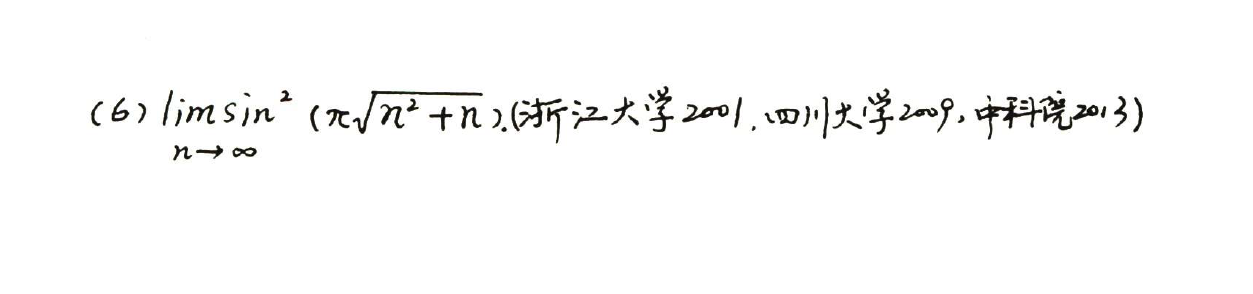 (6) lim sin² (π√(n²+n)). (浙江大学2001, 四川大学2009, 中科院2013)
n→∞